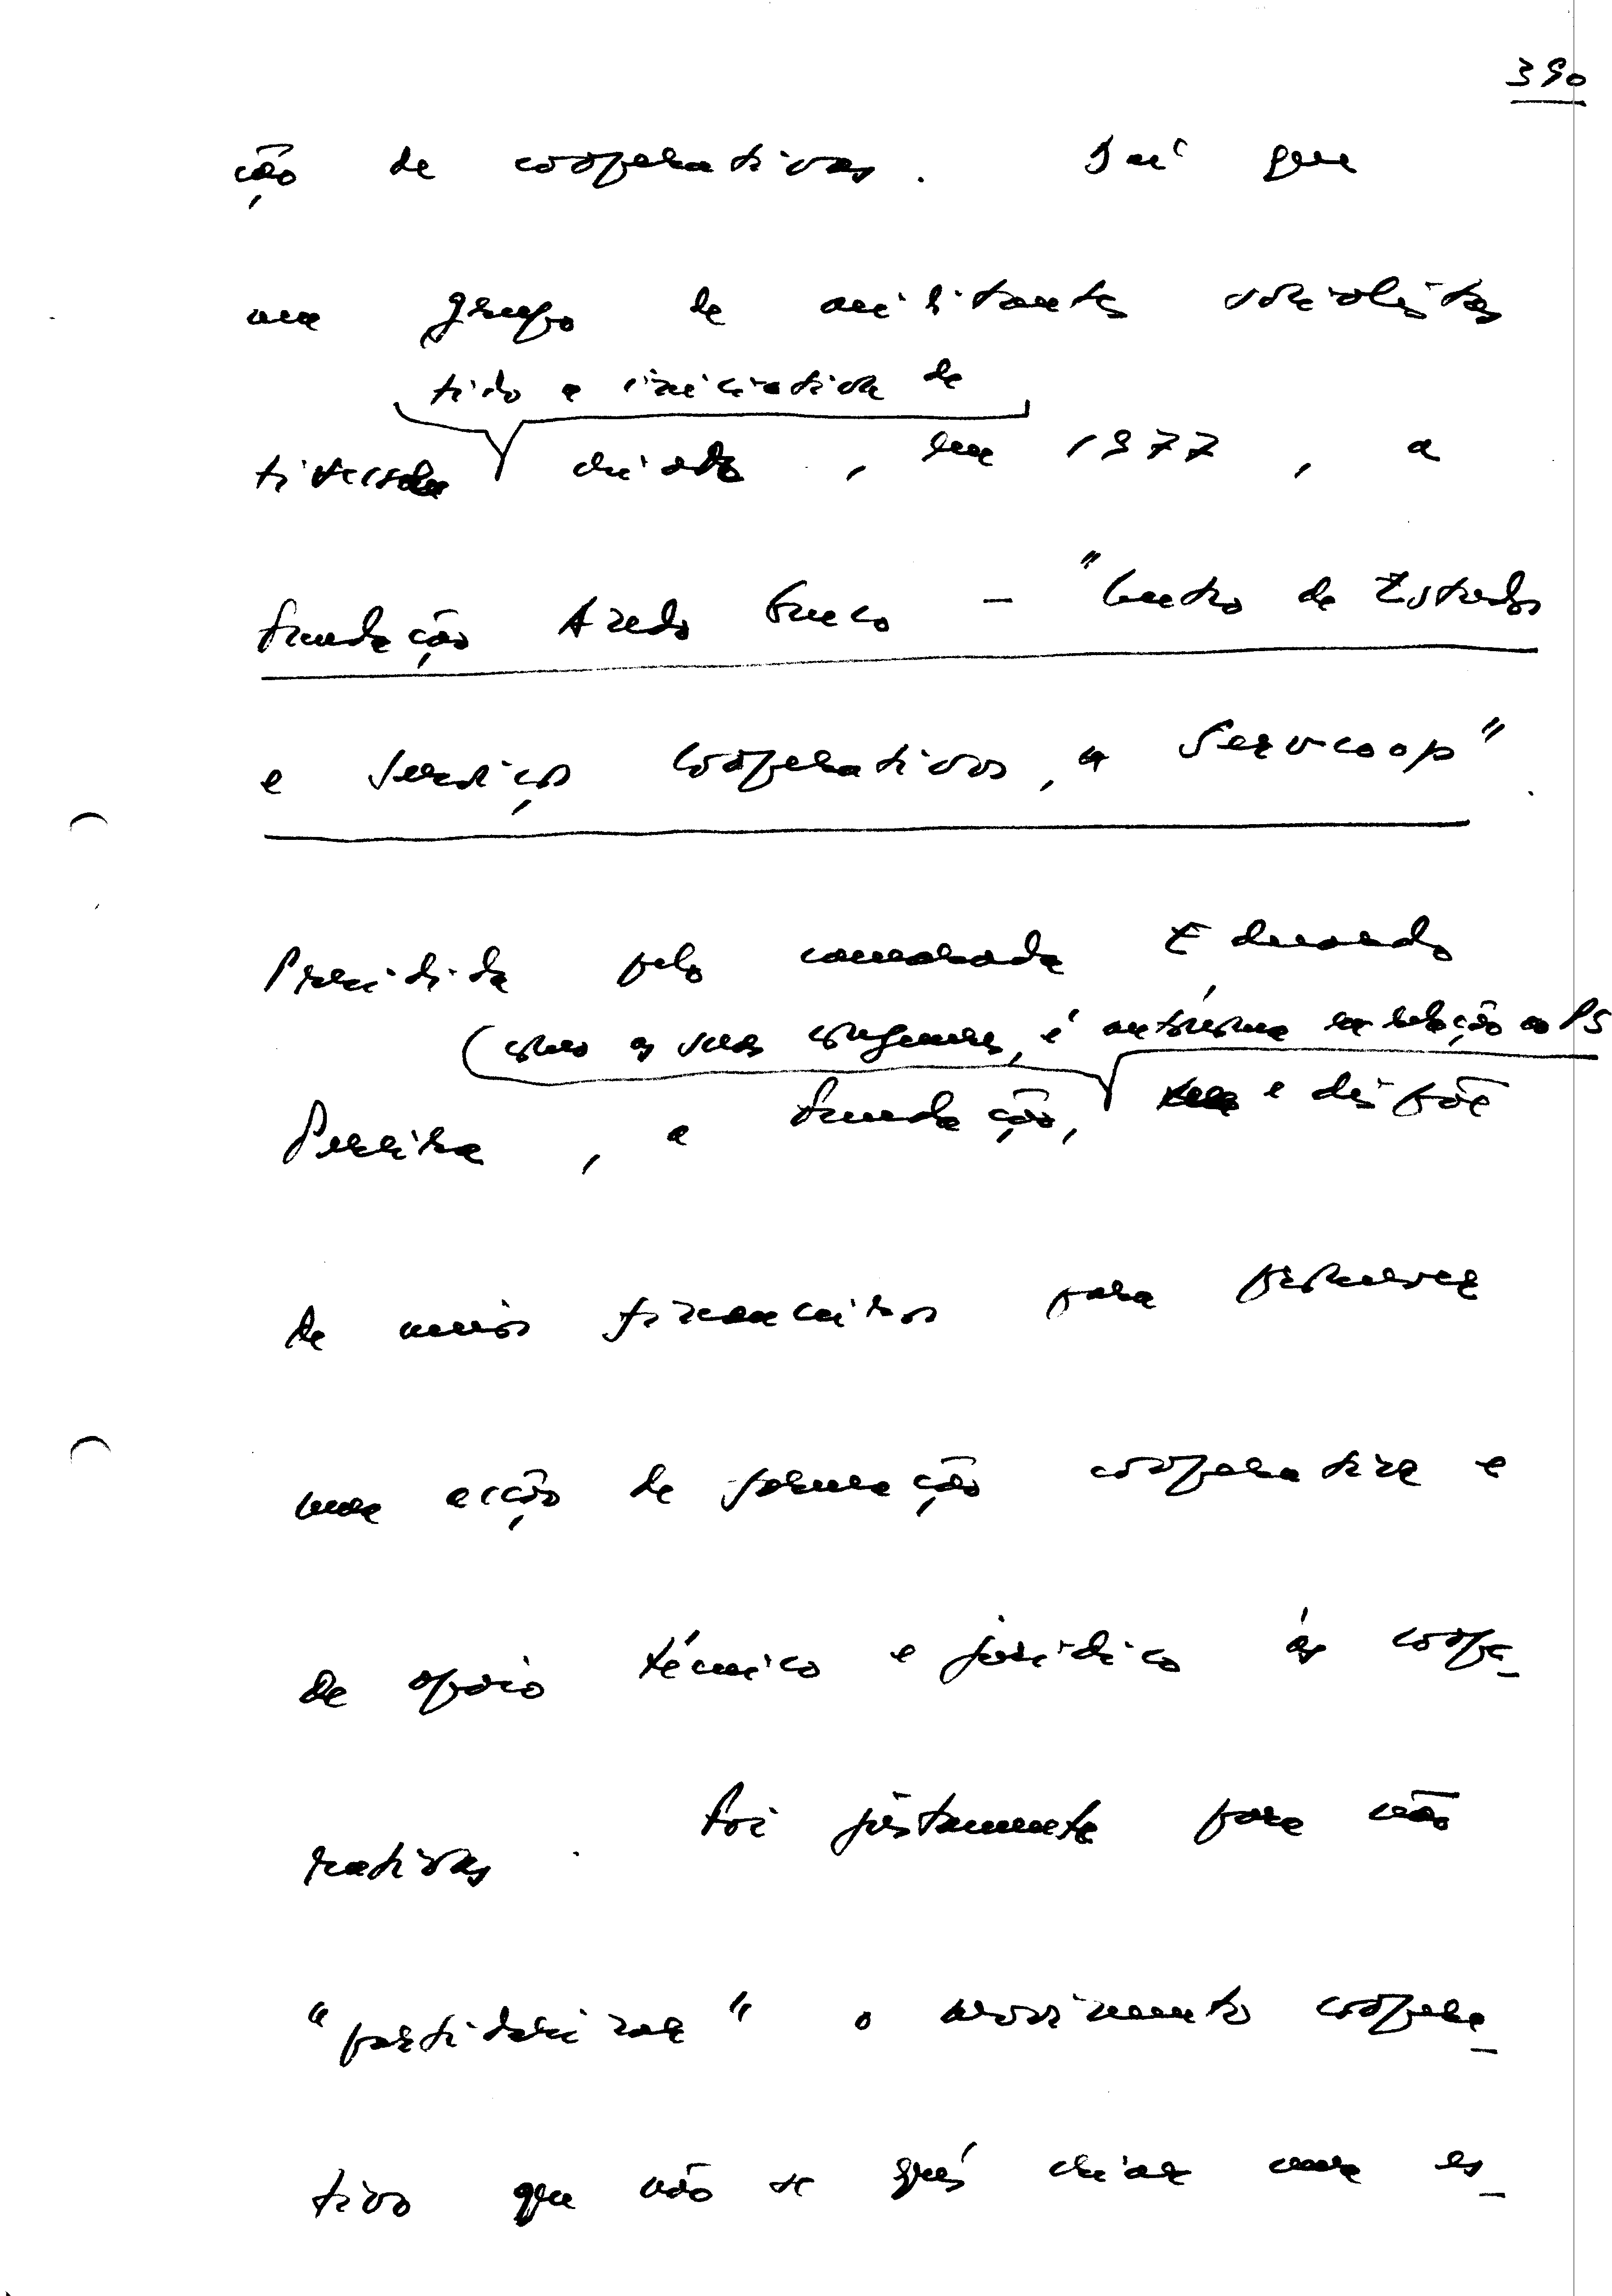 390
ção de cooperativas. Daí que
um grupo de militantes socialistas
tido a iniciativa de
tivesse criado, em 1977, a
Fundação Azedo Gneco - "Centro de Estudos
e Serviços Cooperativos, a Servcoop".
Presidida pelo camarada Eduardo
como as suas congéneres, é autónoma em relação ao PS
Pereira, a Fundação, e dispõe
de meios financeiros para promover
uma acção de formação cooperativa e
de apoio técnico e jurídico às coope-
rativas. Foi justamente para não
"partidarizar" o movimento coopera-
tivo que não se quis criar uma es-